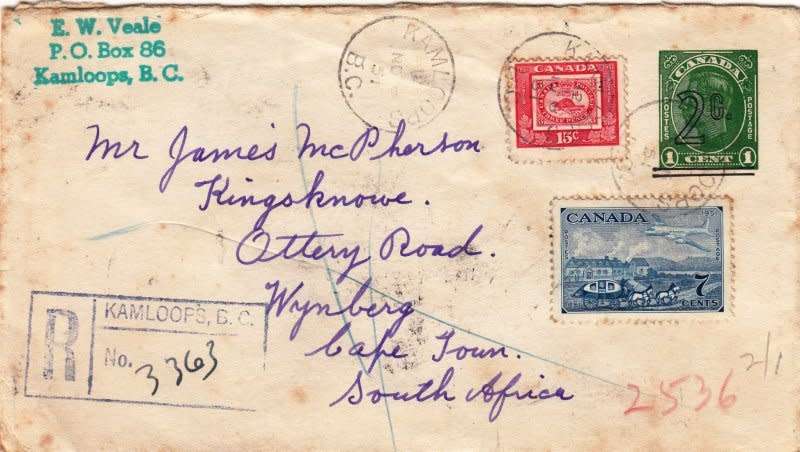 E. W. Veale
P.O. Box 86
Kamloops, B. C.
KAMLOOPS
B.C.
CANADA
15¢
CANADA
POSTES
POSTAGE
2¢.
1 CENT 1
Mr James McPherson
Kingsknowe.
Ottery Road.
Wynberg
Cape Town.
South Africa
CANADA
1951
POSTES
POSTAGE
7
CENTS
R
KAMLOOPS, B. C.
No. 3363
2536
2/1